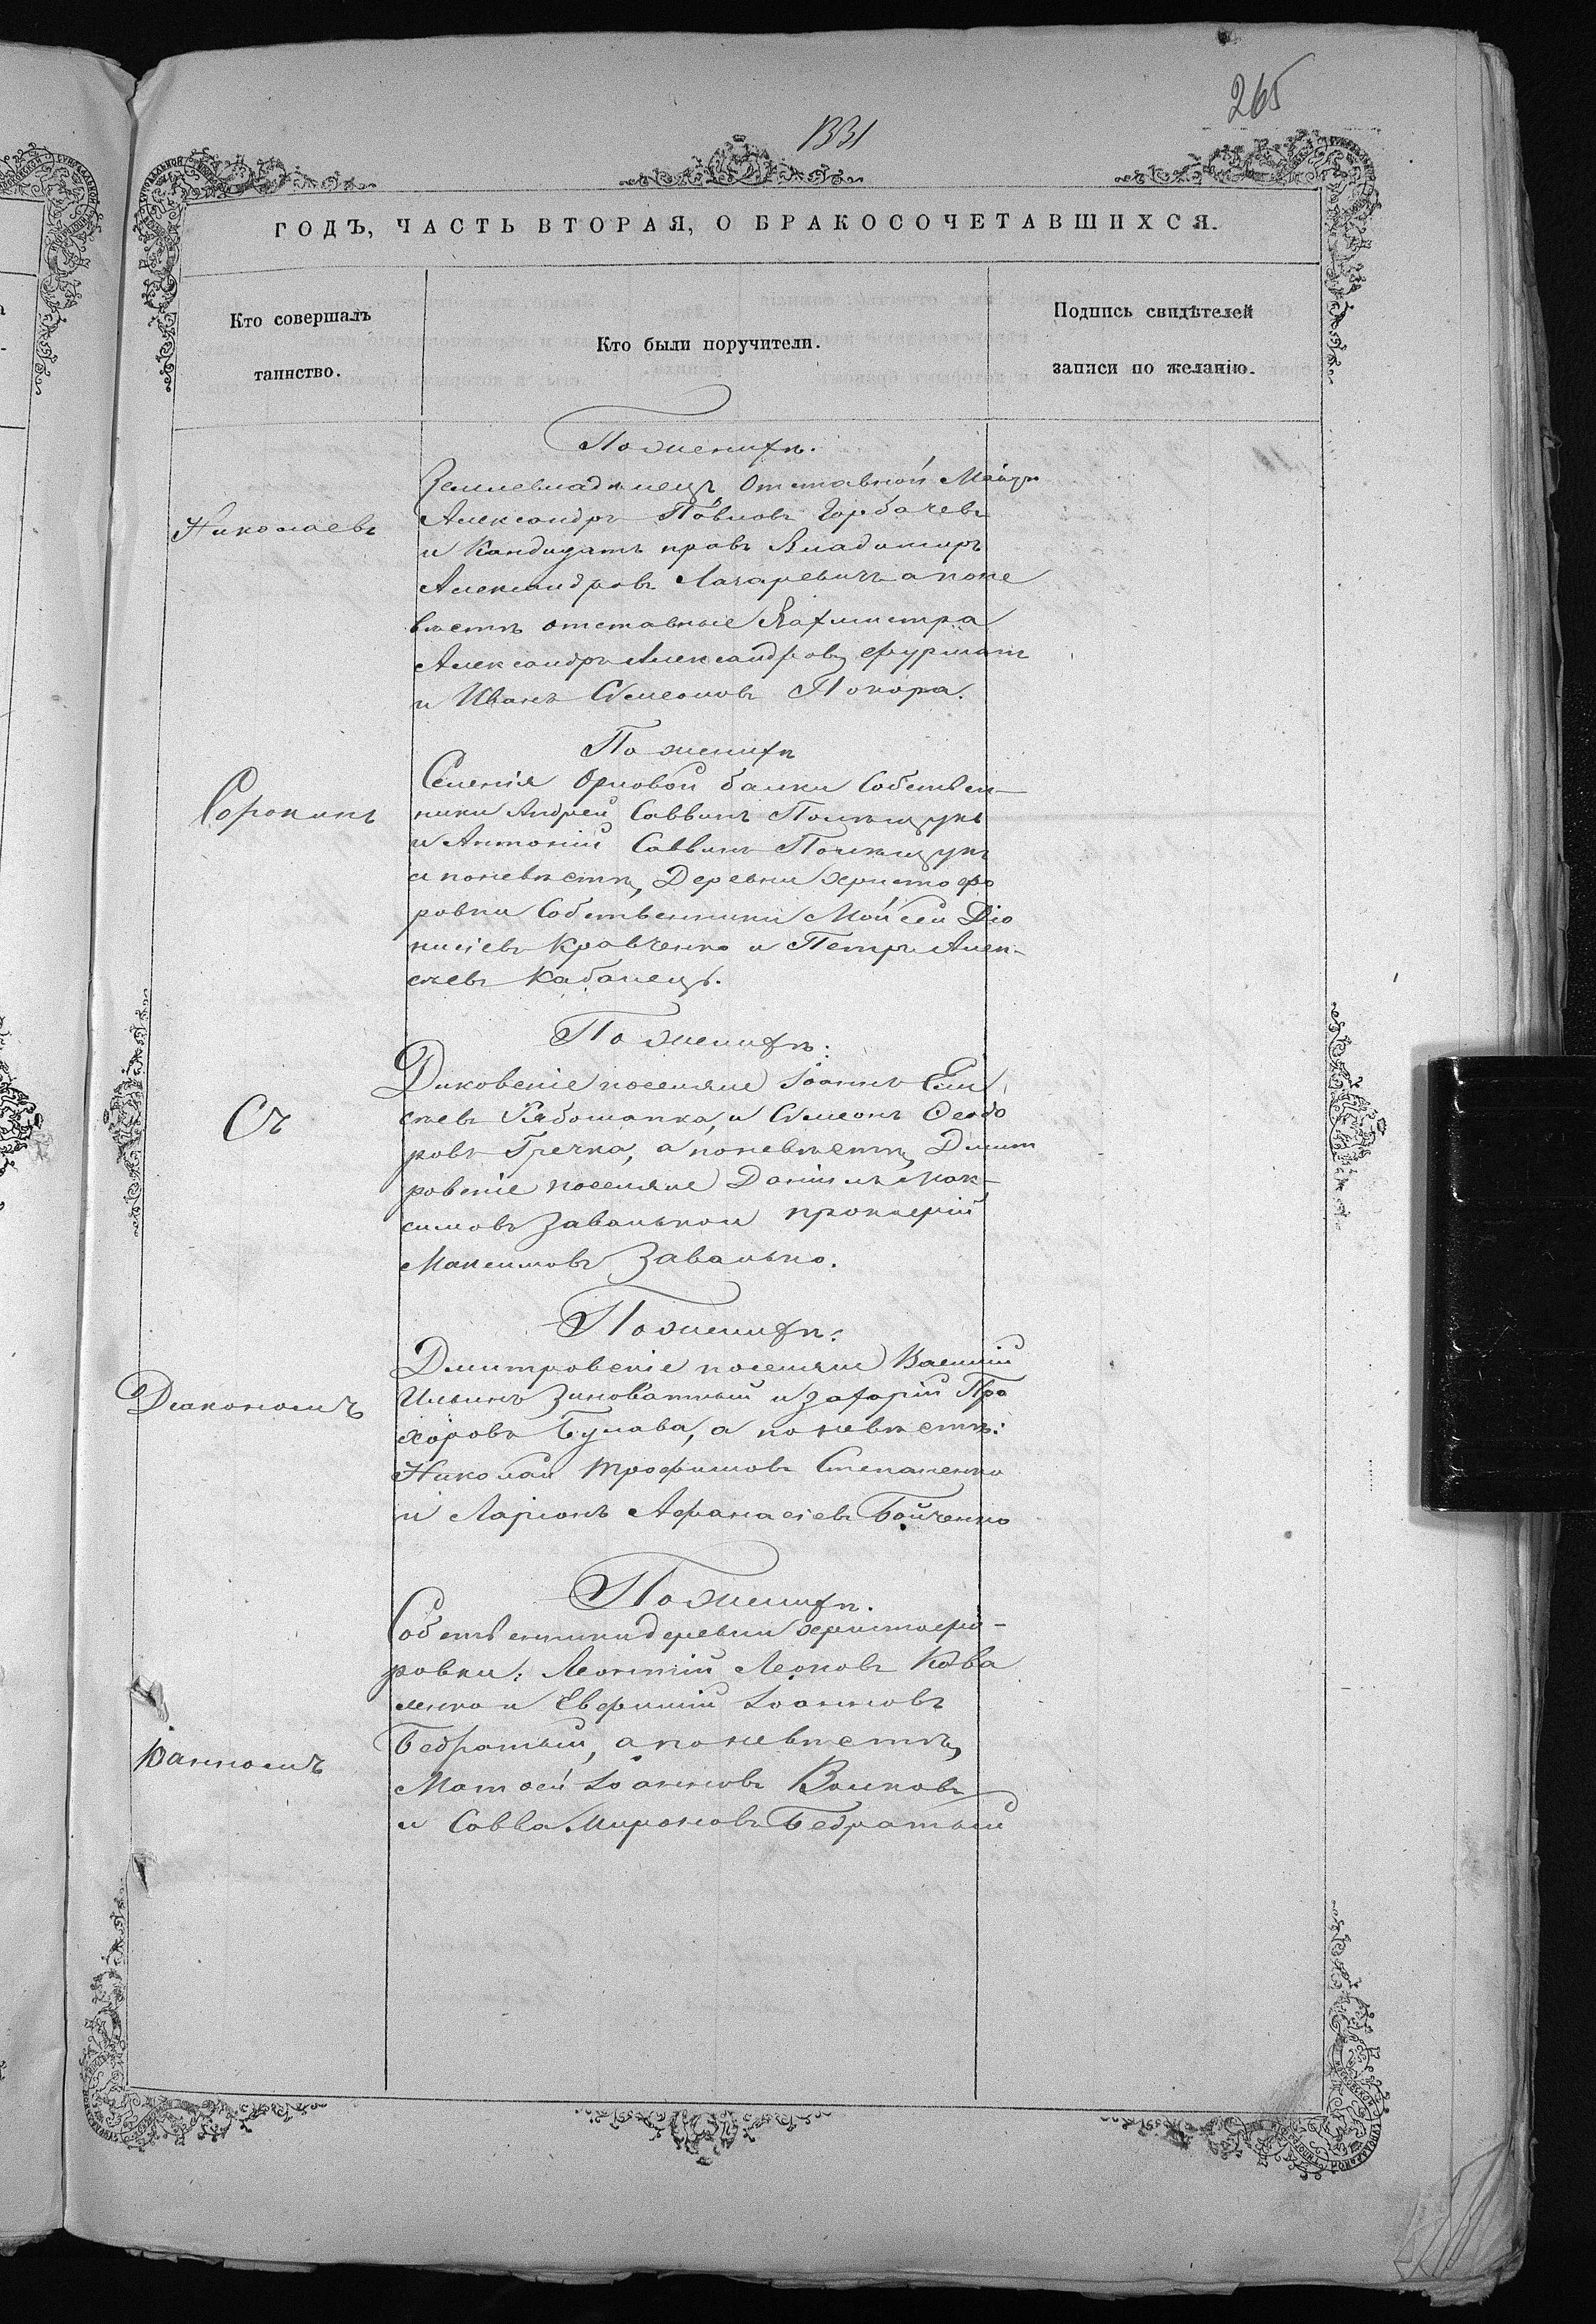 265
1331
ГОДЪ, ЧАСТЬ ВТОРАЯ, О БРАКОСОЧЕТАВШИХСЯ.
Кто совершалъ
таинство.
Кто были поручители.
Подпись свидѣтелей
записи по желанію.
По женихѣ.
Землевладѣлецъ Отставной Маіоръ
Николаевъ
Александръ Павловъ Горбачевъ
и Кандидатъ правъ Владимиръ
Александровъ Лазаревичъ а поне
вѣстѣ отставные Вахмистра
Александръ Александровъ Фурманъ
и Иванъ Симеоновъ Покора.
По женихѣ
Селенія Орловой балки Собствен-
Сорокинъ
ники Андрей Саввинъ Полищукъ
и Антоній Саввинъ Полищукъ
а поневѣстѣ, Деревни Христофо
ровки Собственники Моисей Діо
нисіевъ Кравченко и Петръ Алек-
сѣевъ Кабанецъ.
По женихѣ:
Диковскіе поселяне Іоаннъ Ели
Съ
сѣевъ Рябошапка, и Симеонъ Ѳеодо
ровъ Гречка, а поневѣстѣ, Дмит
ровскіе поселяне Даніилъ Мак-
симовъ Завалькои Прокопій
Максимовъ Завалько.
По женихѣ:
Дмитровскіе поселяне Василій
Діакономъ
Ильинъ Зиноватный и Захарій Про
хоровъ Булава, а по невѣстѣ:
Николай Трофимовъ Степаненко
и Ларіонъ Афанасіевъ Бойченко
По женихѣ.
Собственники деревни Христофо-
ровки: Леонтій Леоновъ Кова
ленко и Евфимій Іоанновъ
Бедратый, а по невѣстѣ,
Іоанномъ
Матѳей Іоанновъ Волковъ
и Савва Мироновъ Бедратый